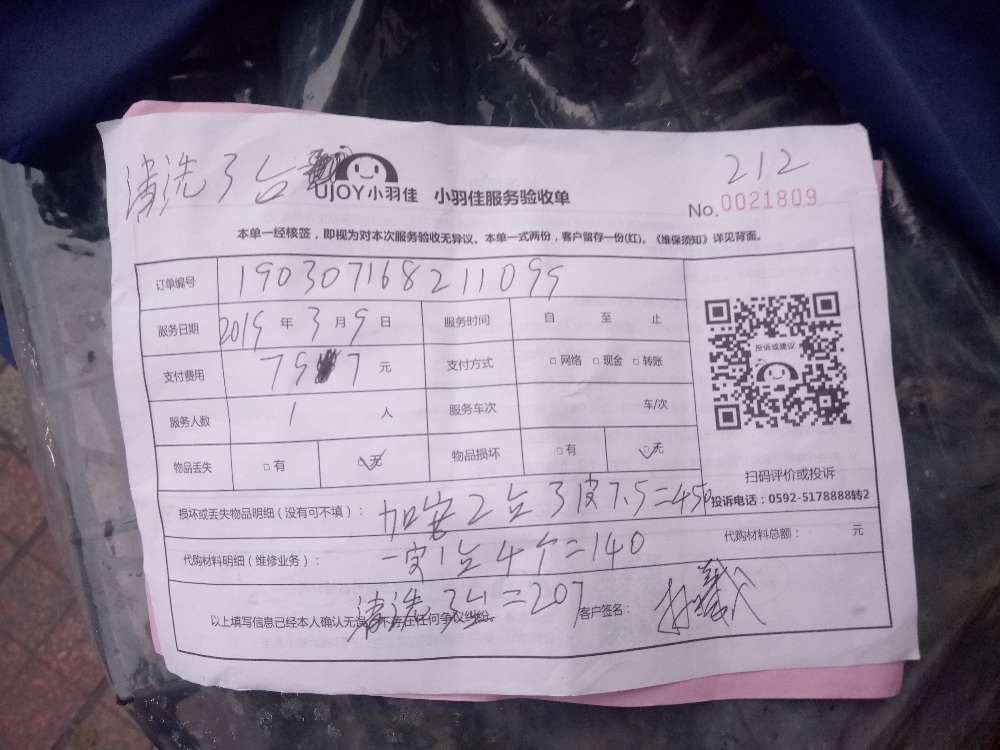 清洗3台
212
UJOY小羽佳 小羽佳服务验收单
No.0021809
本单一经核签，即视为对本次服务验收无异议。本单一式两份，客户留存一份(红)。《维保须知》详见背面。
订单编号 190307168211099
服务日期 2019年3月9日 服务时间 自 至 止
支付费用 797元 支付方式 □网络 □现金 □转账
服务人数 1人 服务车次 车/次
物品丢失 □有 □无 物品损坏 □有 □无
投诉或建议
扫码评价或投诉
投诉电话：0592-5178888转2
损坏或丢失物品明细（没有可不填）： 加安2台3皮7.5=450
代购材料明细（维修业务）： 一安1台4个=140 代购材料总额： 元
清洗3台=207
以上填写信息已经本人确认无误，不存在任何争议纠纷。 客户签名：